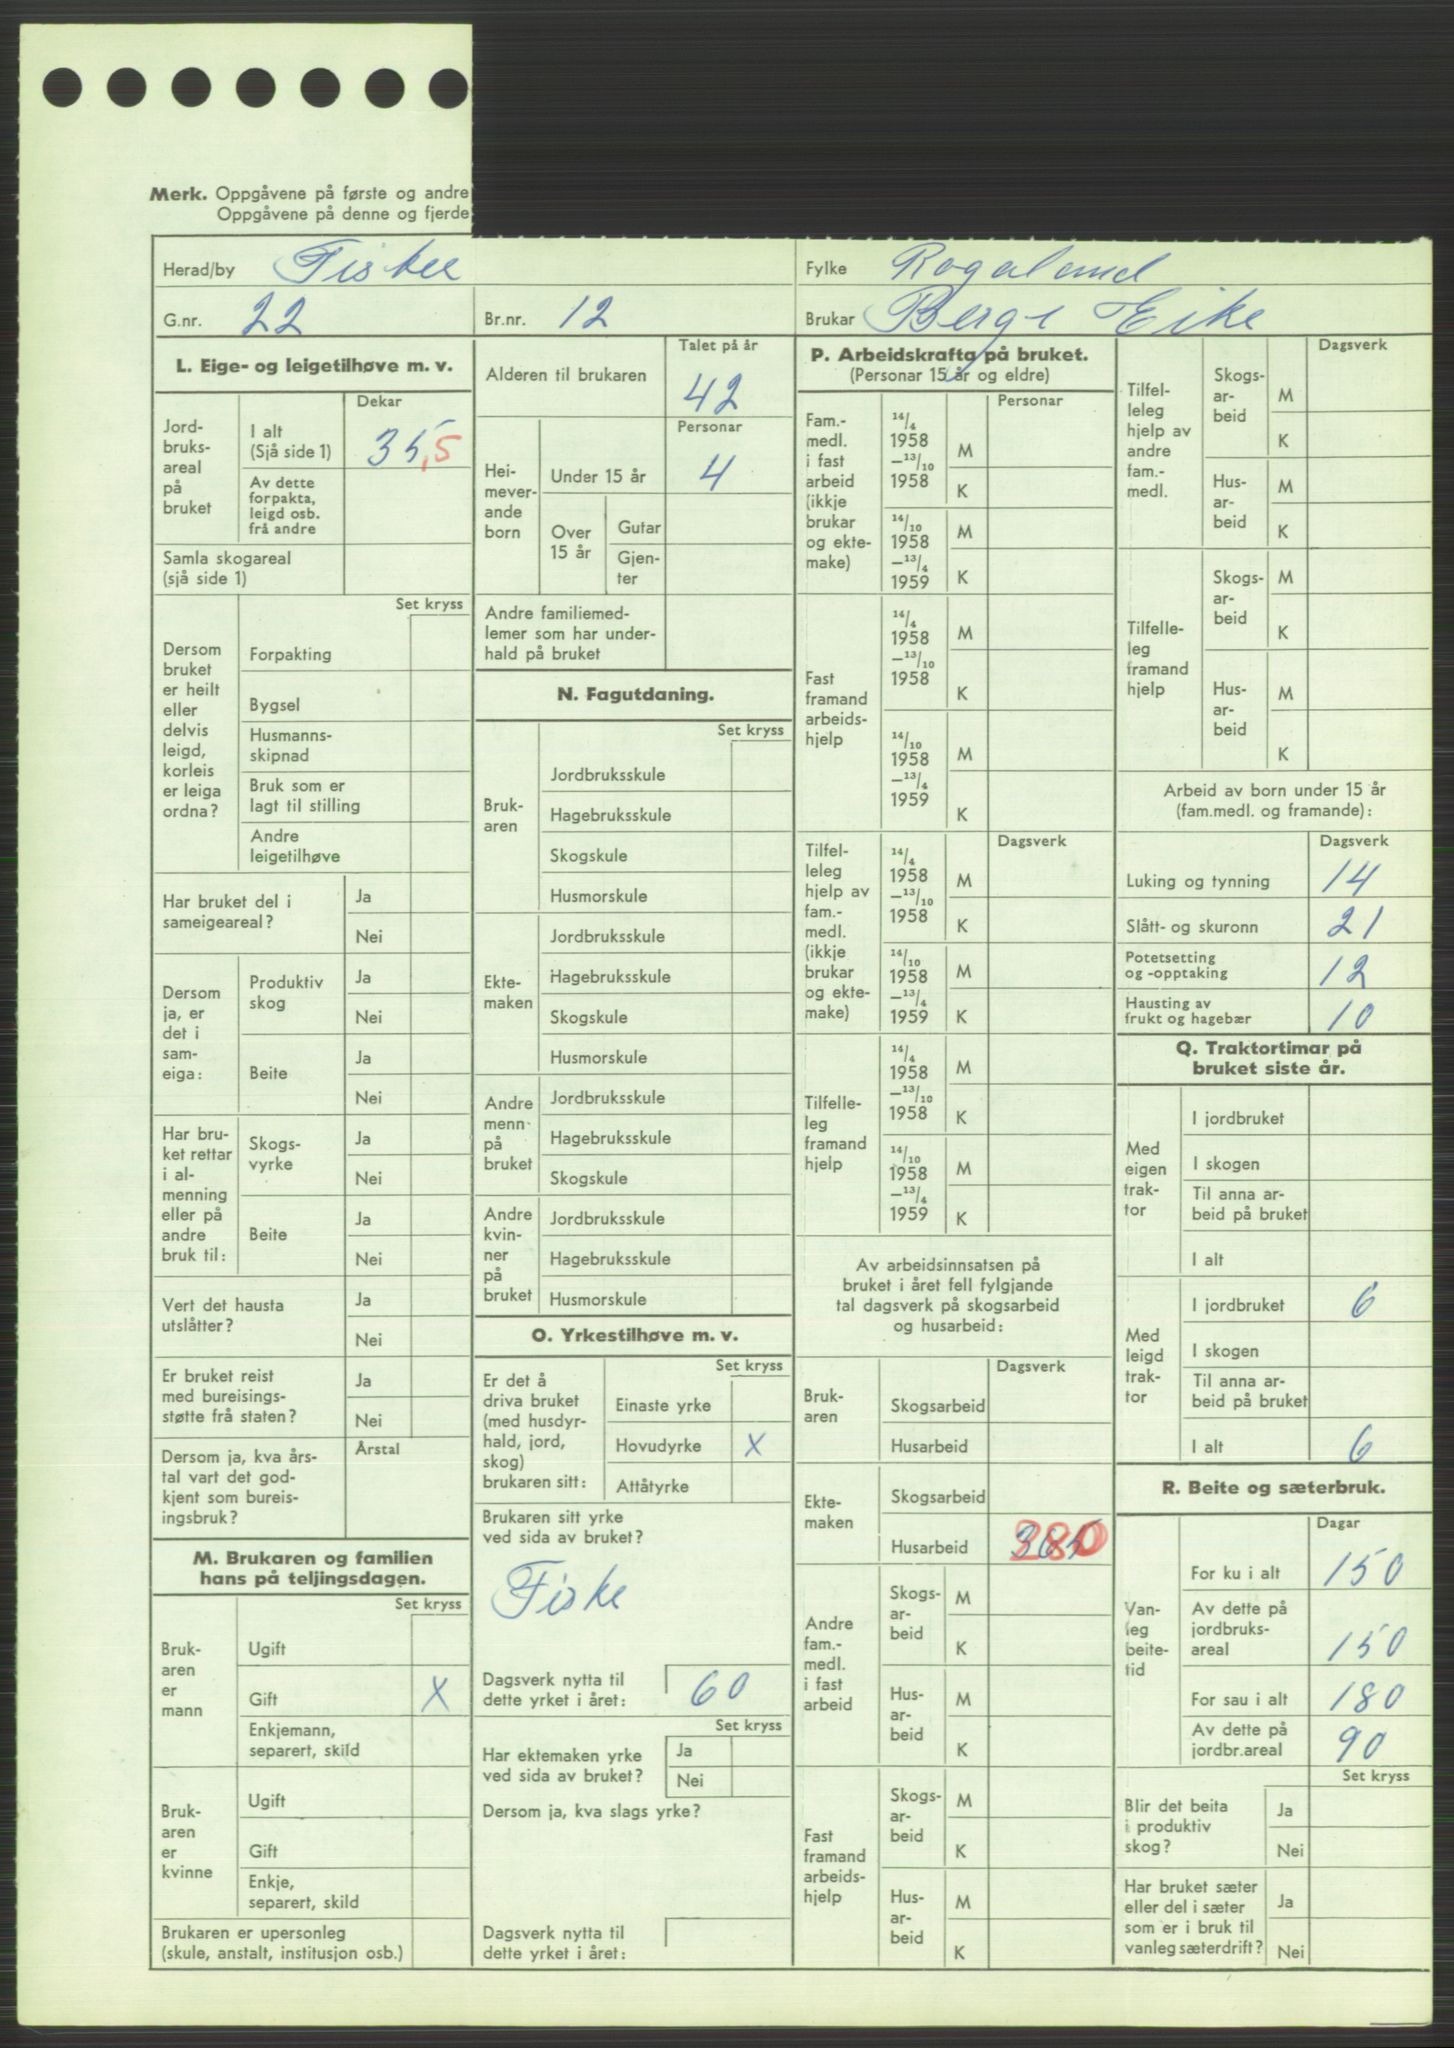 Merk. Oppgåvene på første og andre
Oppgåvene på denne og fjerde
Herad/by Fister
Fylke Rogaland
G.nr. 22
Br.nr. 12
Brukar Berge Eike
L. Eige- og leigetilhøve m. v.
Jord-
bruks-
areal
på
bruket
Dekar
I alt
(Sjå side 1) 35,5
Av dette
forpakta,
leigd osb.
frå andre
Samla skogareal
(sjå side 1)
Set kryss
Dersom
bruket
er heilt
eller
delvis
leigd,
korleis
er leiga
ordna?
Forpakting
Bygsel
Husmanns-
skipnad
Bruk som er
lagt til stilling
Andre
leigetilhøve
Har bruket del i
sameigeareal?
Ja
Nei
Dersom
ja, er
det i
sam-
eiga:
Produktiv
skog
Ja
Nei
Beite
Ja
Nei
Har bru-
ket rettar
i al-
menning
eller på
andre
bruk til:
Skogs-
vyrke
Ja
Nei
Beite
Ja
Nei
Vert det hausta
utslåtter?
Ja
Nei
Er bruket reist
med bureisings-
støtte frå staten?
Ja
Nei
Dersom ja, kva års-
tal vart det god-
kjent som bureis-
ingsbruk?
Årstal
M. Brukaren og familien
hans på teljingsdagen.
Set kryss
Bruk-
aren
er
mann
Ugift
Gift X
Enkjemann,
separert, skild
Bruk-
aren
er
kvinne
Ugift
Gift
Enkje,
separert, skild
Brukaren er upersonleg
(skule, anstalt, institusjon osb.)
Talet på år
Alderen til brukaren 42
Personar
Hei-
mever-
ande
born
Under 15 år 4
Over
15 år
Gutar
Gjen-
ter
Andre familiemed-
lemer som har under-
hald på bruket
N. Fagutdaning.
Set kryss
Bruk-
aren
Jordbruksskule
Hagebruksskule
Skogskule
Husmorskule
Ekte-
maken
Jordbruksskule
Hagebruksskule
Skogskule
Husmorskule
Andre
menn
på
bruket
Jordbruksskule
Hagebruksskule
Skogskule
Andre
kvin-
ner
på
bruket
Jordbruksskule
Hagebruksskule
Husmorskule
O. Yrkestilhøve m. v.
Set kryss
Er det å
driva bruket
(med husdyr-
hald, jord,
skog)
brukaren sitt:
Einaste yrke
Hovudyrke X
Attåtyrke
Brukaren sitt yrke
ved sida av bruket?
Fiske
Dagsverk nytta til
dette yrket i året: 60
Set kryss
Har ektemaken yrke
ved sida av bruket?
Ja
Nei
Dersom ja, kva slags yrke?
Dagsverk nytta til
dette yrket i året:
P. Arbeidskrafta på bruket.
(Personar 15 år og eldre)
Personar
Fam.-
medl.
i fast
arbeid
(ikkje
brukar
og ekte-
make)
14/4
1958
—13/10
1958
M
K
14/10
1958
—13/4
1959
M
K
Fast
framand
arbeids-
hjelp
14/4
1958
—13/10
1958
M
K
14/10
1958
—13/4
1959
M
K
Dagsverk
Tilfel-
leleg
hjelp av
fam.-
medl.
(ikkje
brukar
og ekte-
make)
14/4
1958
—13/10
1958
M
K
14/10
1958
—13/4
1959
M
K
Tilfelle-
leg
framand
hjelp
14/4
1958
—13/10
1958
M
K
14/10
1958
—13/4
1959
M
K
Av arbeidsinnsatsen på
bruket i året fell fylgjande
tal dagsverk på skogsarbeid
og husarbeid:
Dagsverk
Bruk-
aren
Skogsarbeid
Husarbeid
Ekte-
maken
Skogsarbeid
Husarbeid 280
Andre
fam.-
medl.
i fast
arbeid
Skogs-
ar-
beid
M
K
Hus-
ar-
beid
M
K
Fast
framand
arbeids-
hjelp
Skogs-
ar-
beid
M
K
Hus-
ar-
beid
M
K
Dagsverk
Tilfel-
leleg
hjelp av
andre
fam.-
medl.
Skogs-
ar-
beid
M
K
Hus-
ar-
beid
M
K
Tilfelle-
leg
framand
hjelp
Skogs-
ar-
beid
M
K
Hus-
ar-
beid
M
K
Arbeid av born under 15 år
(fam.medl. og framande):
Dagsverk
Luking og tynning 14
Slått- og skuronn 21
Potetsetting
og -opptaking 12
Hausting av
frukt og hagebær 10
Q. Traktortimar på
bruket siste år.
Med
eigen
trak-
tor
I jordbruket
I skogen
Til anna ar-
beid på bruket
I alt
Med
leigd
trak-
tor
I jordbruket 6
I skogen
Til anna ar-
beid på bruket
I alt 6
R. Beite og sæterbruk.
Dagar
Van-
leg
beite-
tid
For ku i alt 150
Av dette på
jordbruks-
areal 150
For sau i alt 180
Av dette på
jordbr.areal 90
Set kryss
Blir det beita
i produktiv
skog?
Ja
Nei
Har bruket sæter
eller del i sæter
som er i bruk til
vanleg sæterdrift?
Ja
Nei